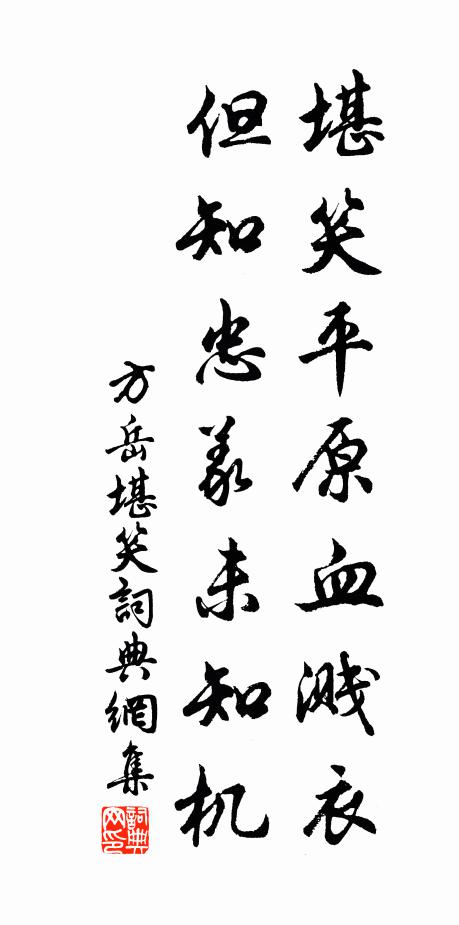 堪笑平原血溅衣
但知忠義未知机
方岳堪笑詞典網集
詞典网印